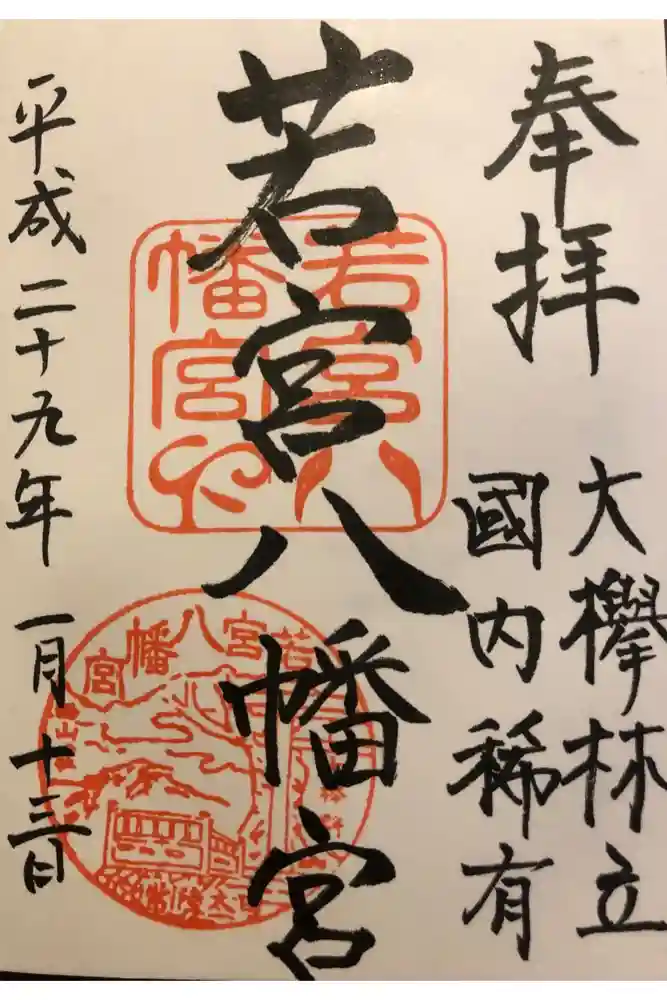 奉拝
大欅林立
國内稀有
若宮八幡宮
若宮八
幡宮之
若宮八幡宮
平成二十九年 一月十三日